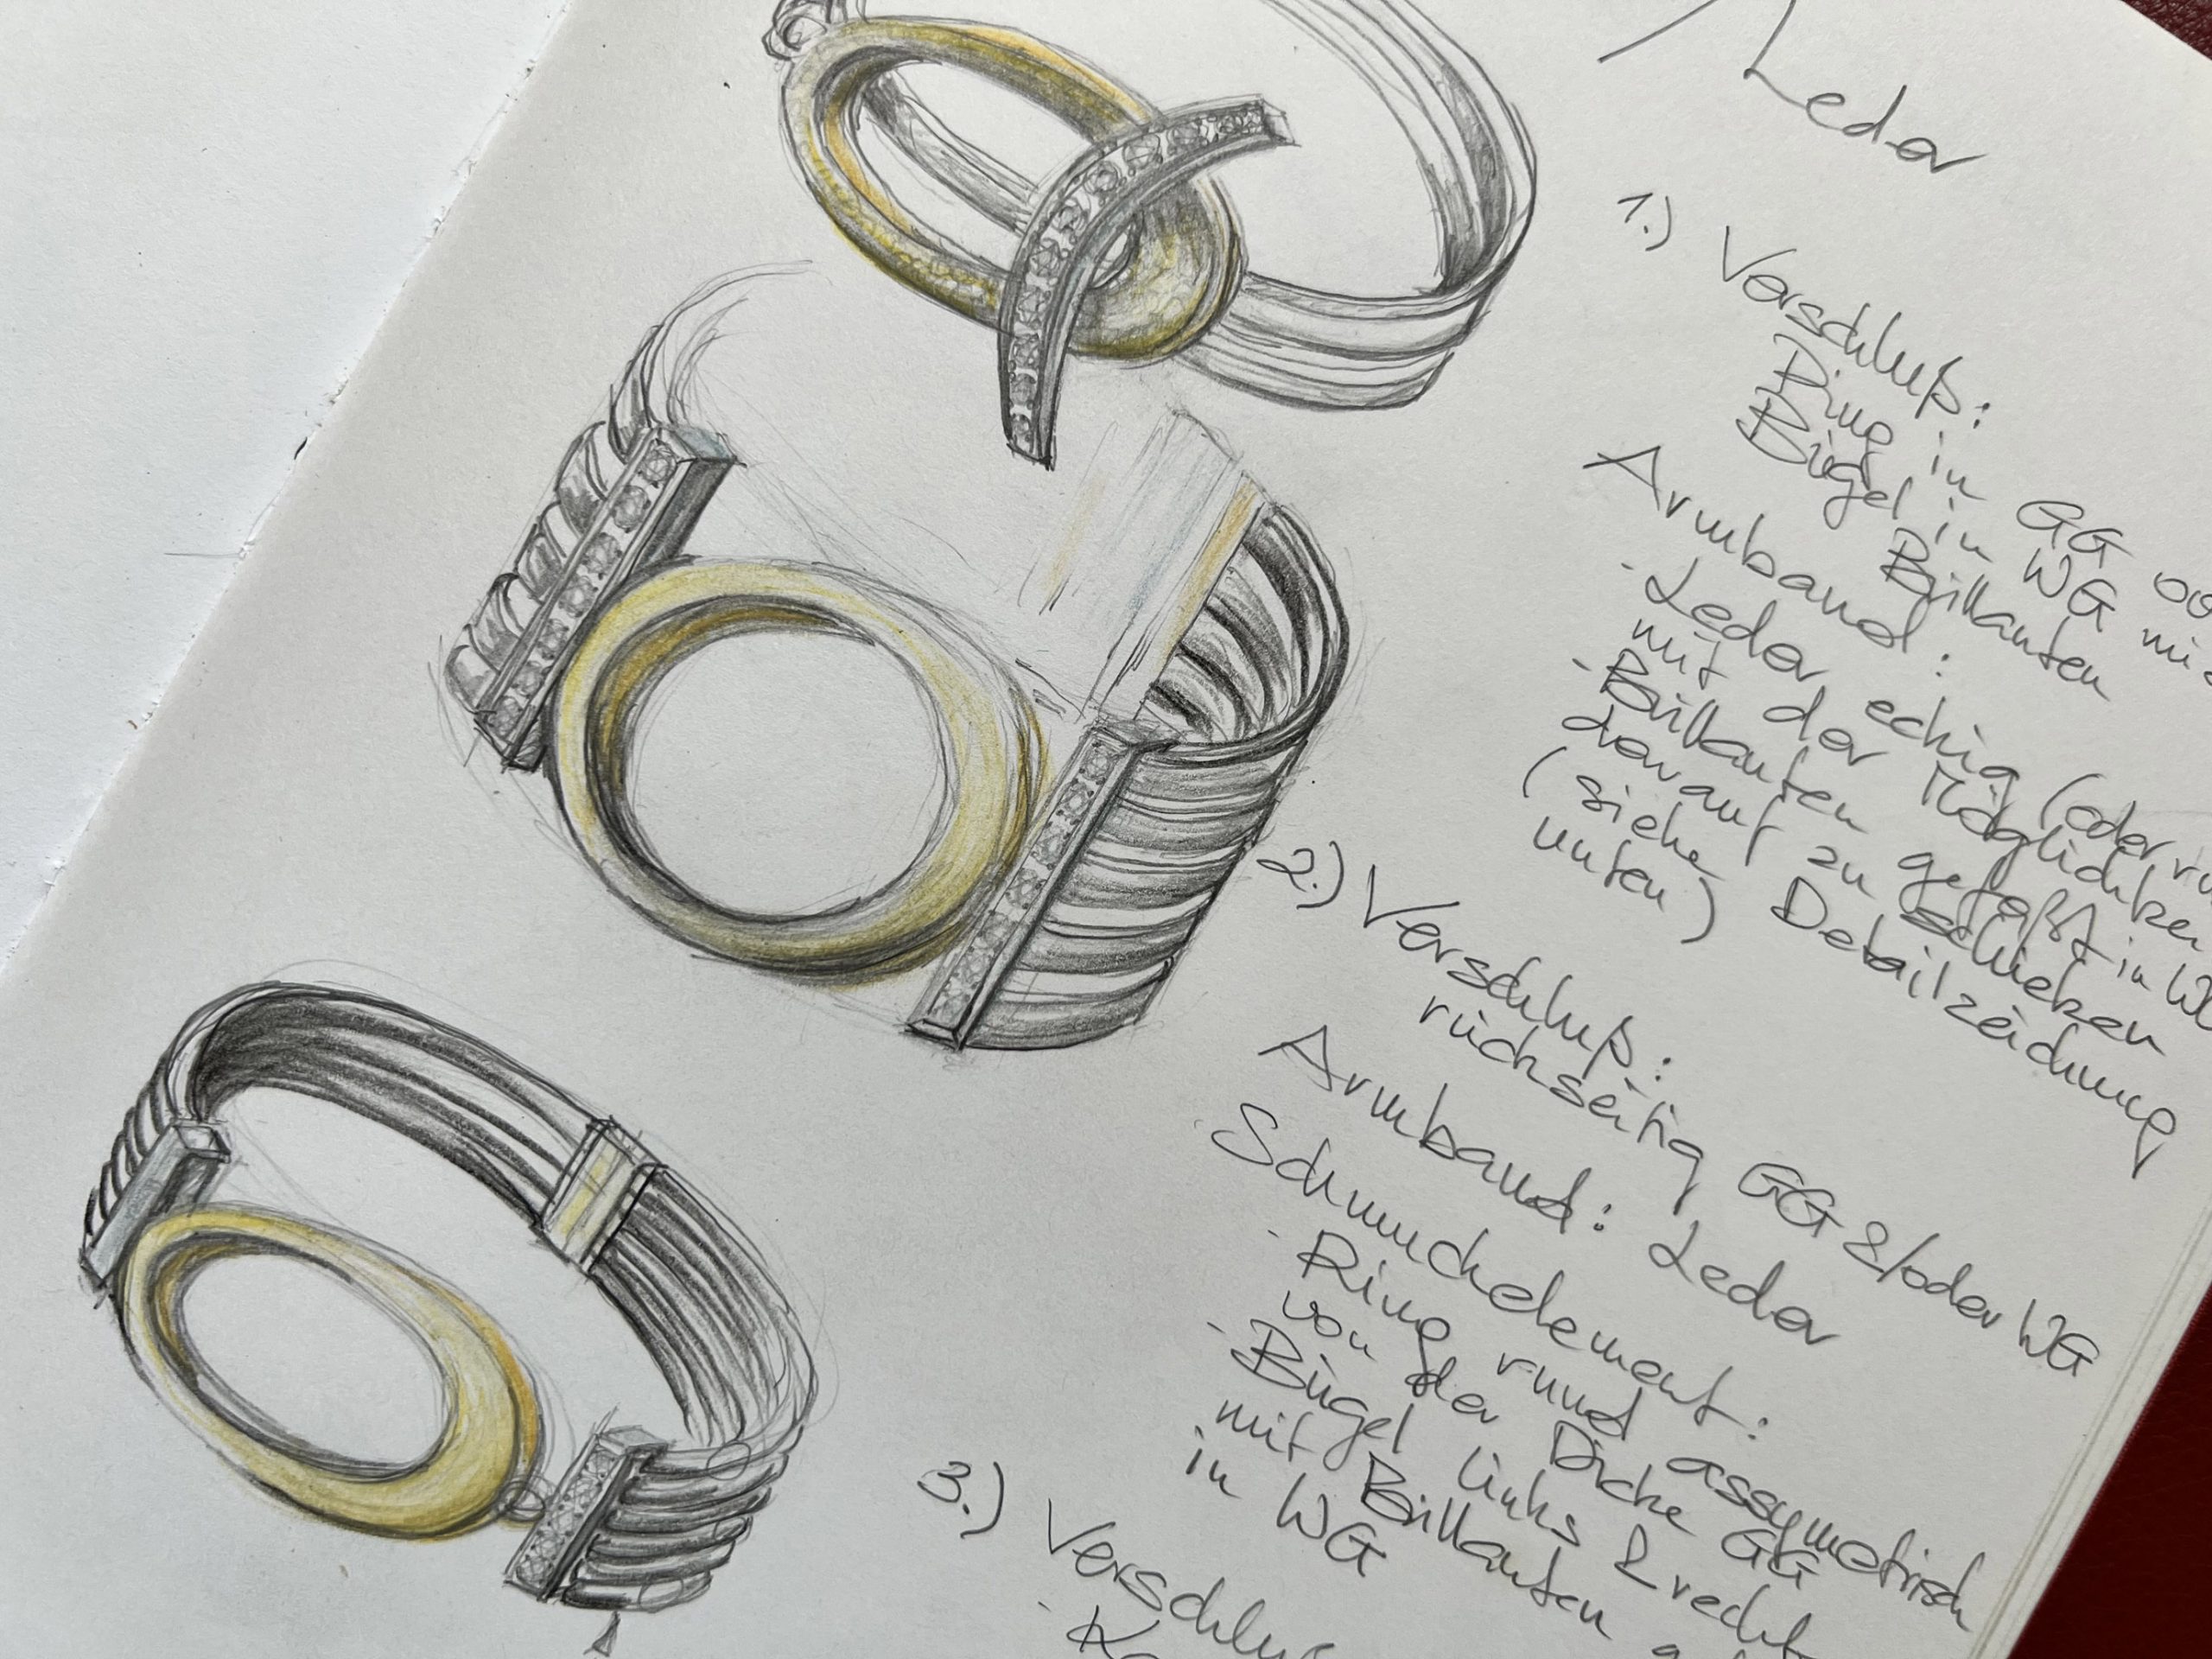 / Leder
1.) Verschluß:
Ring in GG
Bügel in WG mit
Brillanten
Armband:
- Leder eckig (oder
mit der Möglichkei
- Brillanten gefaßt in
darauf zu schieben
(siehe Detailzeichnung
unten)
2.) Verschluß:
rückseitig GG &/oder WG
Armband: Leder
Schmuckelement:
- Ring rund assymetrisch
von der Dicke GG
- Bügel links & rechts
mit Brillanten
in WG
3.) Verschluß